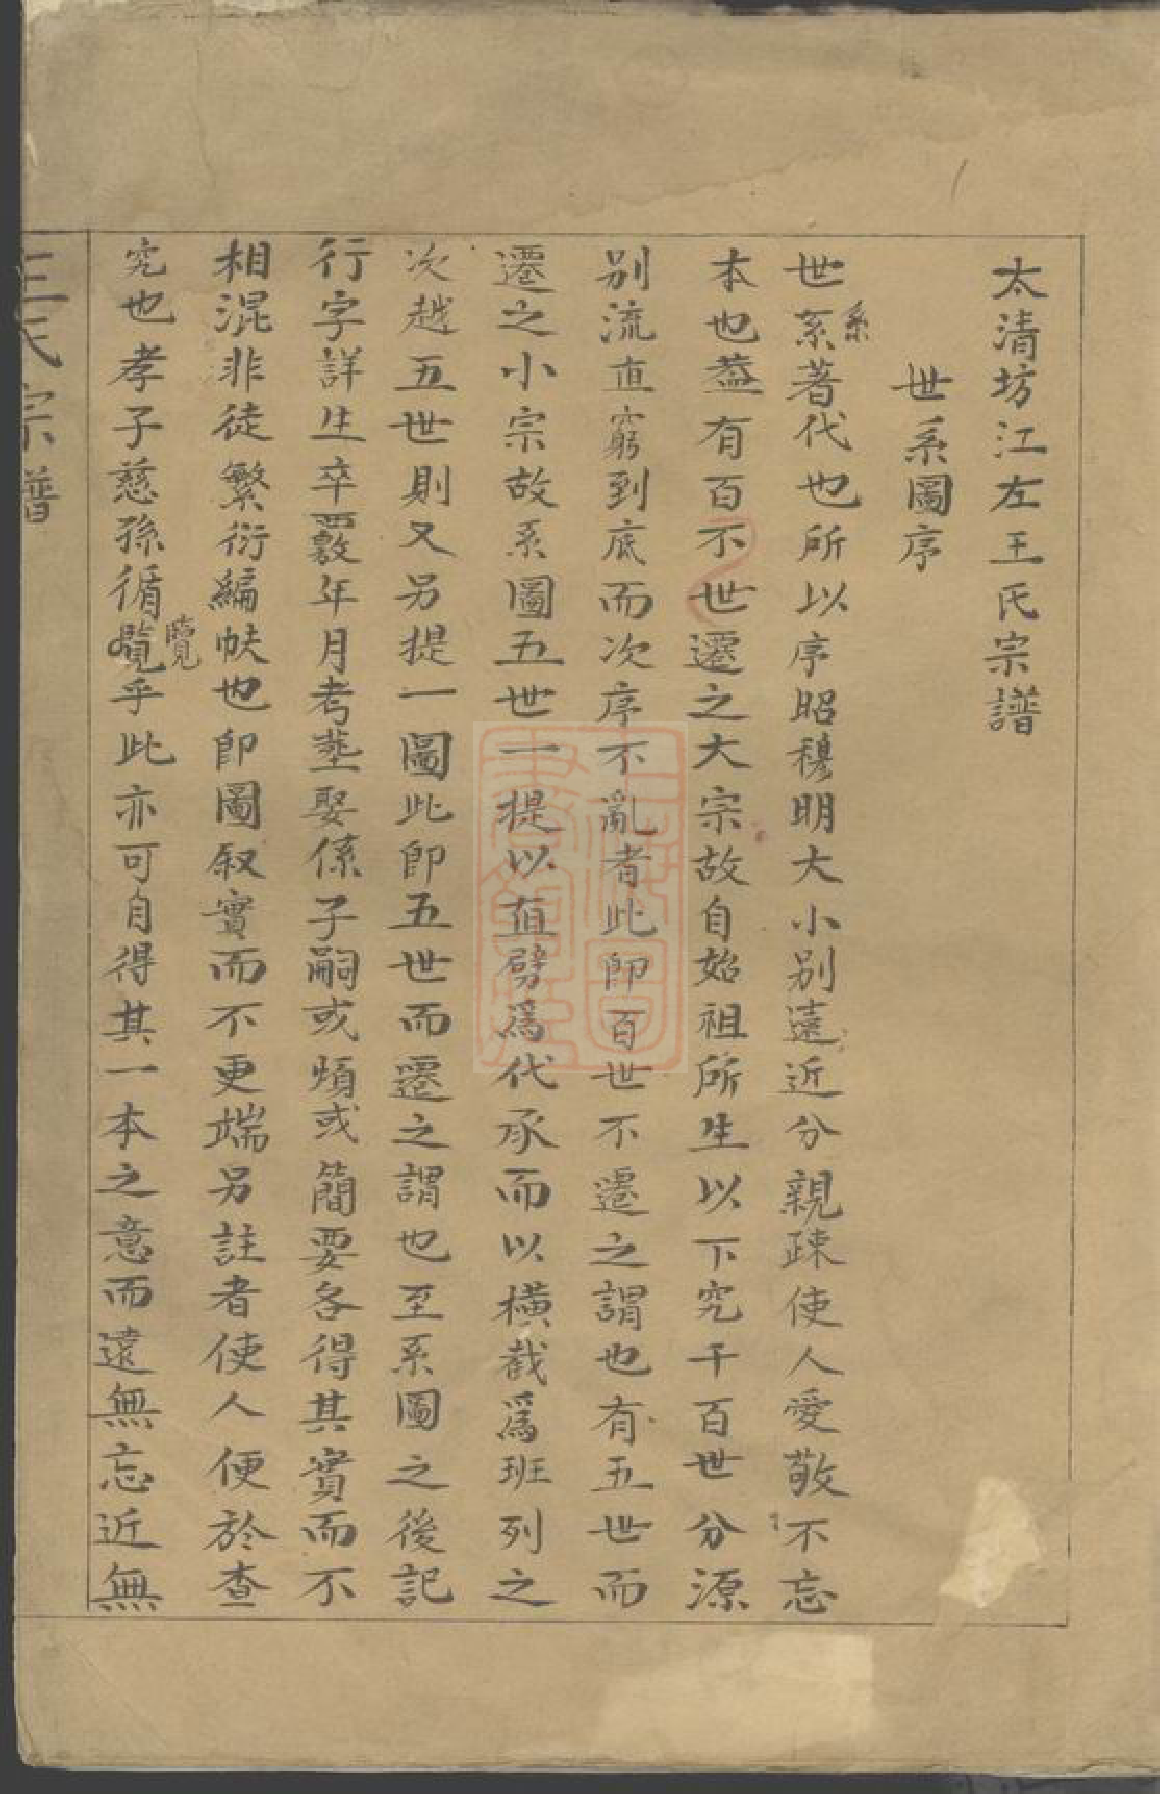 太清坊江左王氏宗譜
世系圖序
世系著代也所以序昭穆明大小別遠近分親疎使人愛敬不忘
系
本也葢有百不世遷之大宗故自始祖所生以下究千百世分源
別流直窮到底而次序不亂者此卽百世不遷之謂也有五世而
遷之小宗故系圖五世一提以直劈爲代承而以橫截爲班列之
次越五世則又另提一圖此卽五世而遷之謂也至系圖之後記
行字詳生卒覈年月考塟娶係子嗣或煩或簡要各得其實而不
相混非徒繁衍編帙也卽圖叙實而不更端另註者使人便於查
究也孝子慈孫循覽乎此亦可自得其一本之意而遠無忘近無
覽
王氏宗譜
上海圖書館藏